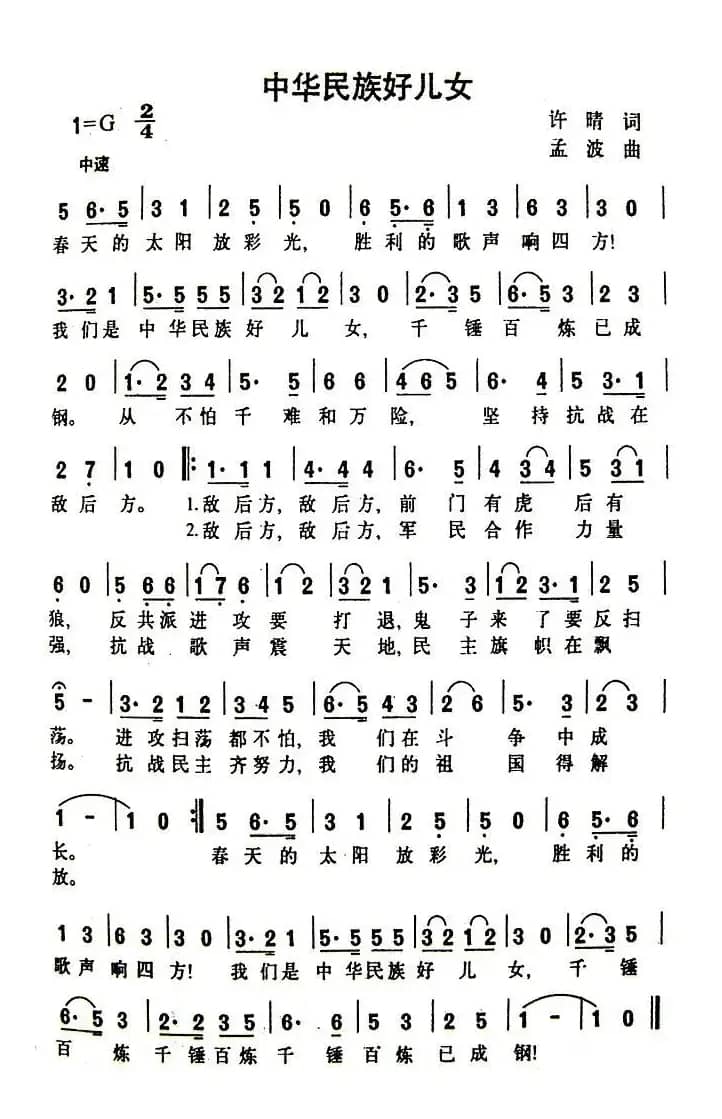 中华民族好儿女
1=G 2/4
许晴词
孟波曲
中速
5 6· 5 | 3 1 | 2 5 | 5 0 | 6 5· 6 | 1 3 | 6 3 | 3 0 |
春天的太阳放彩光，胜利的歌声响四方！
3· 2 1 | 5· 5 5 5 | 3 2 1 2 | 3 0 | 2· 3 5 | 6· 5 3 | 2 3 |
我们是中华民族好儿女，千锤百炼已成
2 0 | 1· 2 3 4 | 5· 5 | 6 6 | 4 6 5 | 6· 4 | 5 3· 1 |
钢。从不怕千难和万险，坚持抗战在
2 7 | 1 0 |: 1· 1 1 | 4· 4 4 | 6· 5 | 4 3 4 | 5 3 1 |
敌后方。1.敌后方，敌后方，前门有虎后有
2.敌后方，敌后方，军民合作力量
6 0 | 5 6 6 | 1 7 6 | 1 2 | 3 2 1 | 5· 3 | 1 2 3· 1 | 2 5 |
狼，反共派进攻要打退，鬼子来了要反扫
强，抗战歌声震天地，民主旗帜在飘
5 - | 3· 2 1 2 | 3 4 5 | 6· 5 4 3 | 2 6 | 5· 3 | 2 3 |
荡。进攻扫荡都不怕，我们在斗争中成
扬。抗战民主齐努力，我们的祖国得解
1 - | 1 0 :| 5 6· 5 | 3 1 | 2 5 | 5 0 | 6 5· 6 |
长。春天的太阳放彩光，胜利的
放。
1 3 | 6 3 | 3 0 | 3· 2 1 | 5· 5 5 5 | 3 2 1 2 | 3 0 | 2· 3 5 |
歌声响四方！我们是中华民族好儿女，千锤
6· 5 3 | 2· 2 3 5 | 6· 6 | 5 3 | 2 5 | 1 - | 1 0 ‖
百炼千锤百炼千锤百炼已成钢！